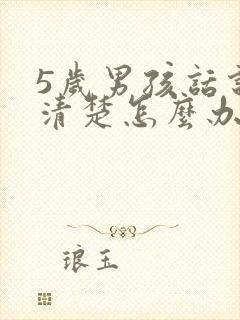 5歲男孩話
清楚怎麼办
琅玉